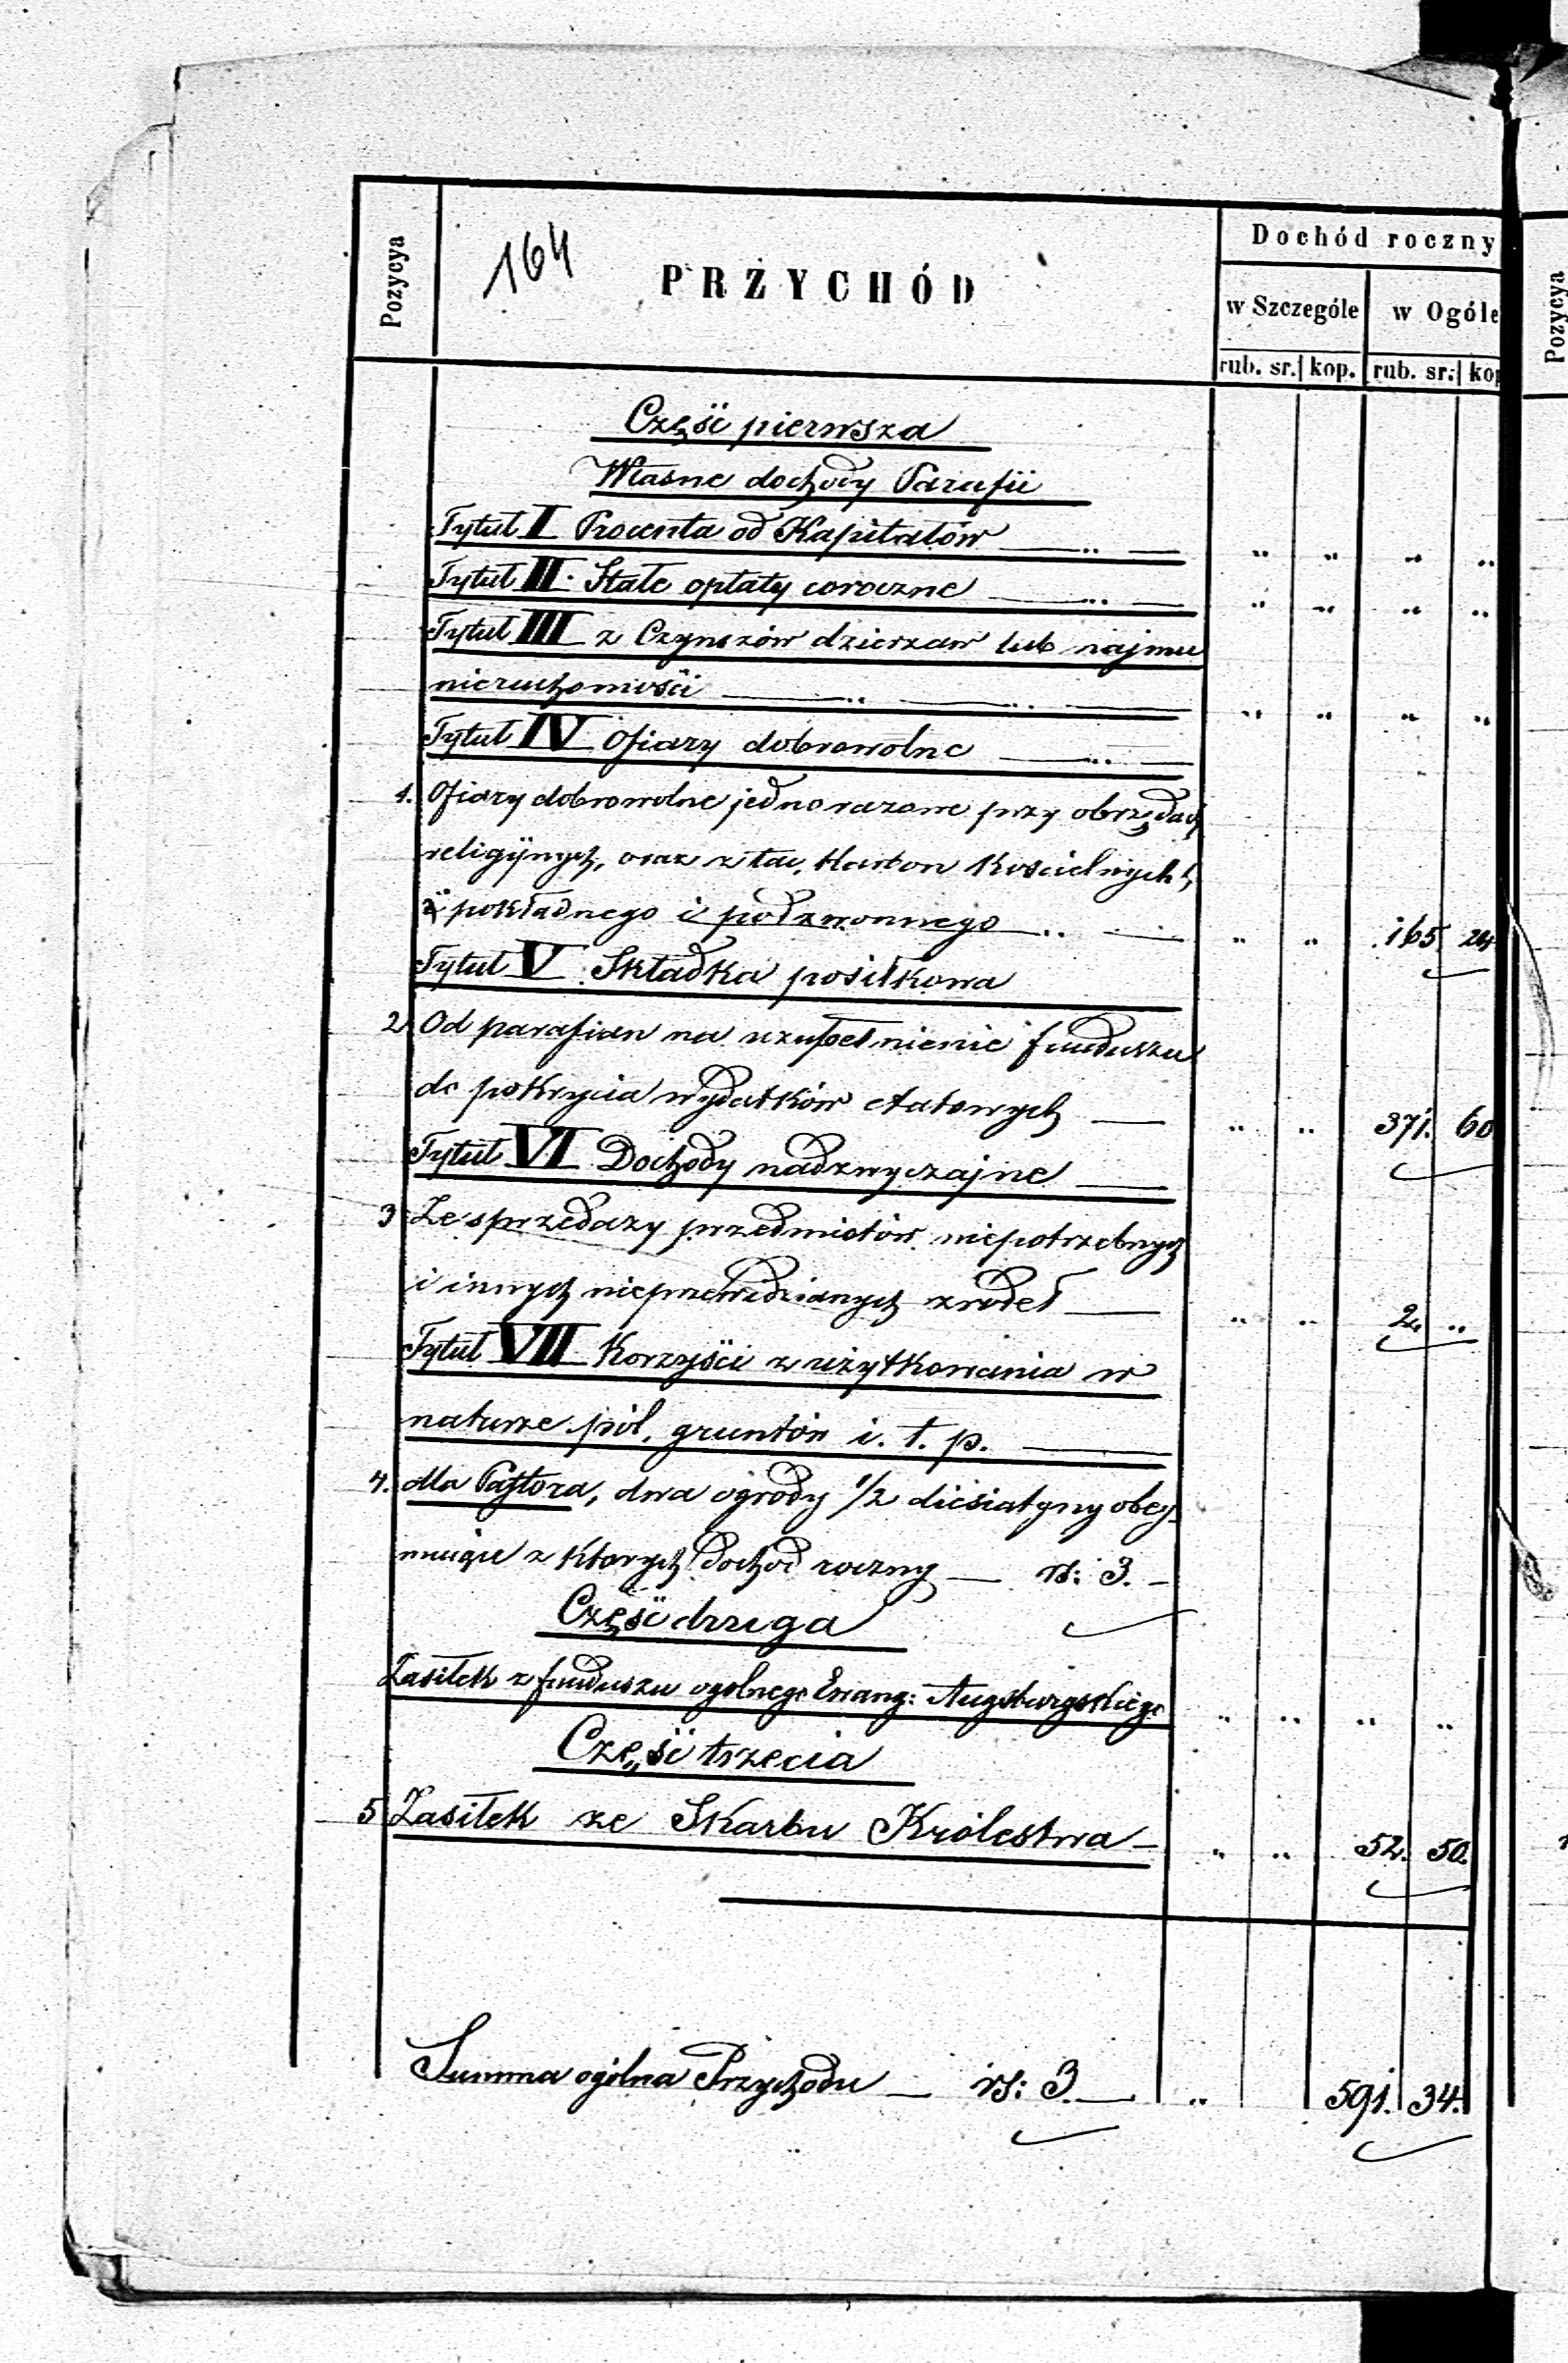 164
Pozycya
PRZYCHÓD
Dochód roczny
w Szczególe w Ogóle
rub. sr. kop. rub. sr. kop
Pozycya
Część pierwsza
Własne dochody Parafii
Tytuł I Procenta od Kapitałów „ „ „ „ „
Tytuł II. Stałe opłaty coroczne „ „ „ „ „
Tytuł III z Czynszów dzierzaw lub najmu
nieruchomości „ „ „ „ „ „
Tytuł IV Ofiary dobrowolne „
1. Ofiary dobrowolne jednorazowe przy obrzędach
religijnych, oraz z tac, Karbon Kościelnych,
z pokładnego i podzwonnego „ „ „ 165 24
Tytuł V Składka posiłkowa
2. Od parafian na uzupełnienie funduszu
do pokrycia wydatków etatowych „ „ 371. 60
Tytuł VI Dochody nadzwyczajne
3 Ze sprzedazy przedmiotów niepotrzebnych
i innych nieprzewidzianych zrodeł „ „ 2. „
Tytuł VII Korzyści z użytkowania w
naturze pól, gruntów i. t. p.
4. dla Pastora, dwa ogrody 1/2 diesiatyny obej-
muiące z ktorych dochod roczny rs: 3. –
Część druga
Zasiłek z funduszu ogolnego Ewang: Augsburgskiego „ „ „ „
Część trzecia
5 Zasiłek ze Skarbu Królestwa „ „ 52. 50.
Summa ogólna Przychodu rs: 3. „ 591. 34.